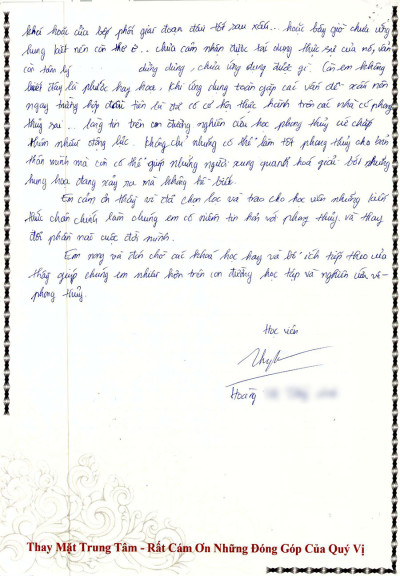 khai hoác của bếp phải giai đoạn đầu tốt sau xấu... hoặc bây giờ chưa ứng
hung cát nên có thể ở... chưa cảm nhận được tác dụng thực sự của nó, vẫn
còn tâm lý dừng dưng, chưa ứng dụng được gì. Còn em không
biết đây là phước hay họa, khi ứng dụng toàn gặp các vấn đề xấu nên
ngay trường hợp đầu tiên là đã có cơ hội thực hành trên các nhà có phong
thủy xấu... lòng tin trên con đường nghiên cứu học phong thủy về chấp
thêm nhiều động lực. Không chỉ những có thể làm tốt phong thủy cho bản
thân mình mà còn có thể giúp những người xung quanh hoá giải bớt những
hung họa đang xảy ra mà không hề biết.
Em cảm ơn thầy vì đã chọn lọc và trao cho học viên những kiến
thức chân chính làm chúng em có niềm tin hơn với phong thủy, và thay
đổi phần nào cuộc đời mình.
Em mong và đón chờ các khoá học hay và bổ ích tiếp theo của
thầy giúp chúng em nhiều hơn trên con đường học tập và nghiên cứu về
phong thủy.
Học viên
Hoàng
Thay Mặt Trung Tâm - Rất Cám Ơn Những Đóng Góp Của Quý Vị